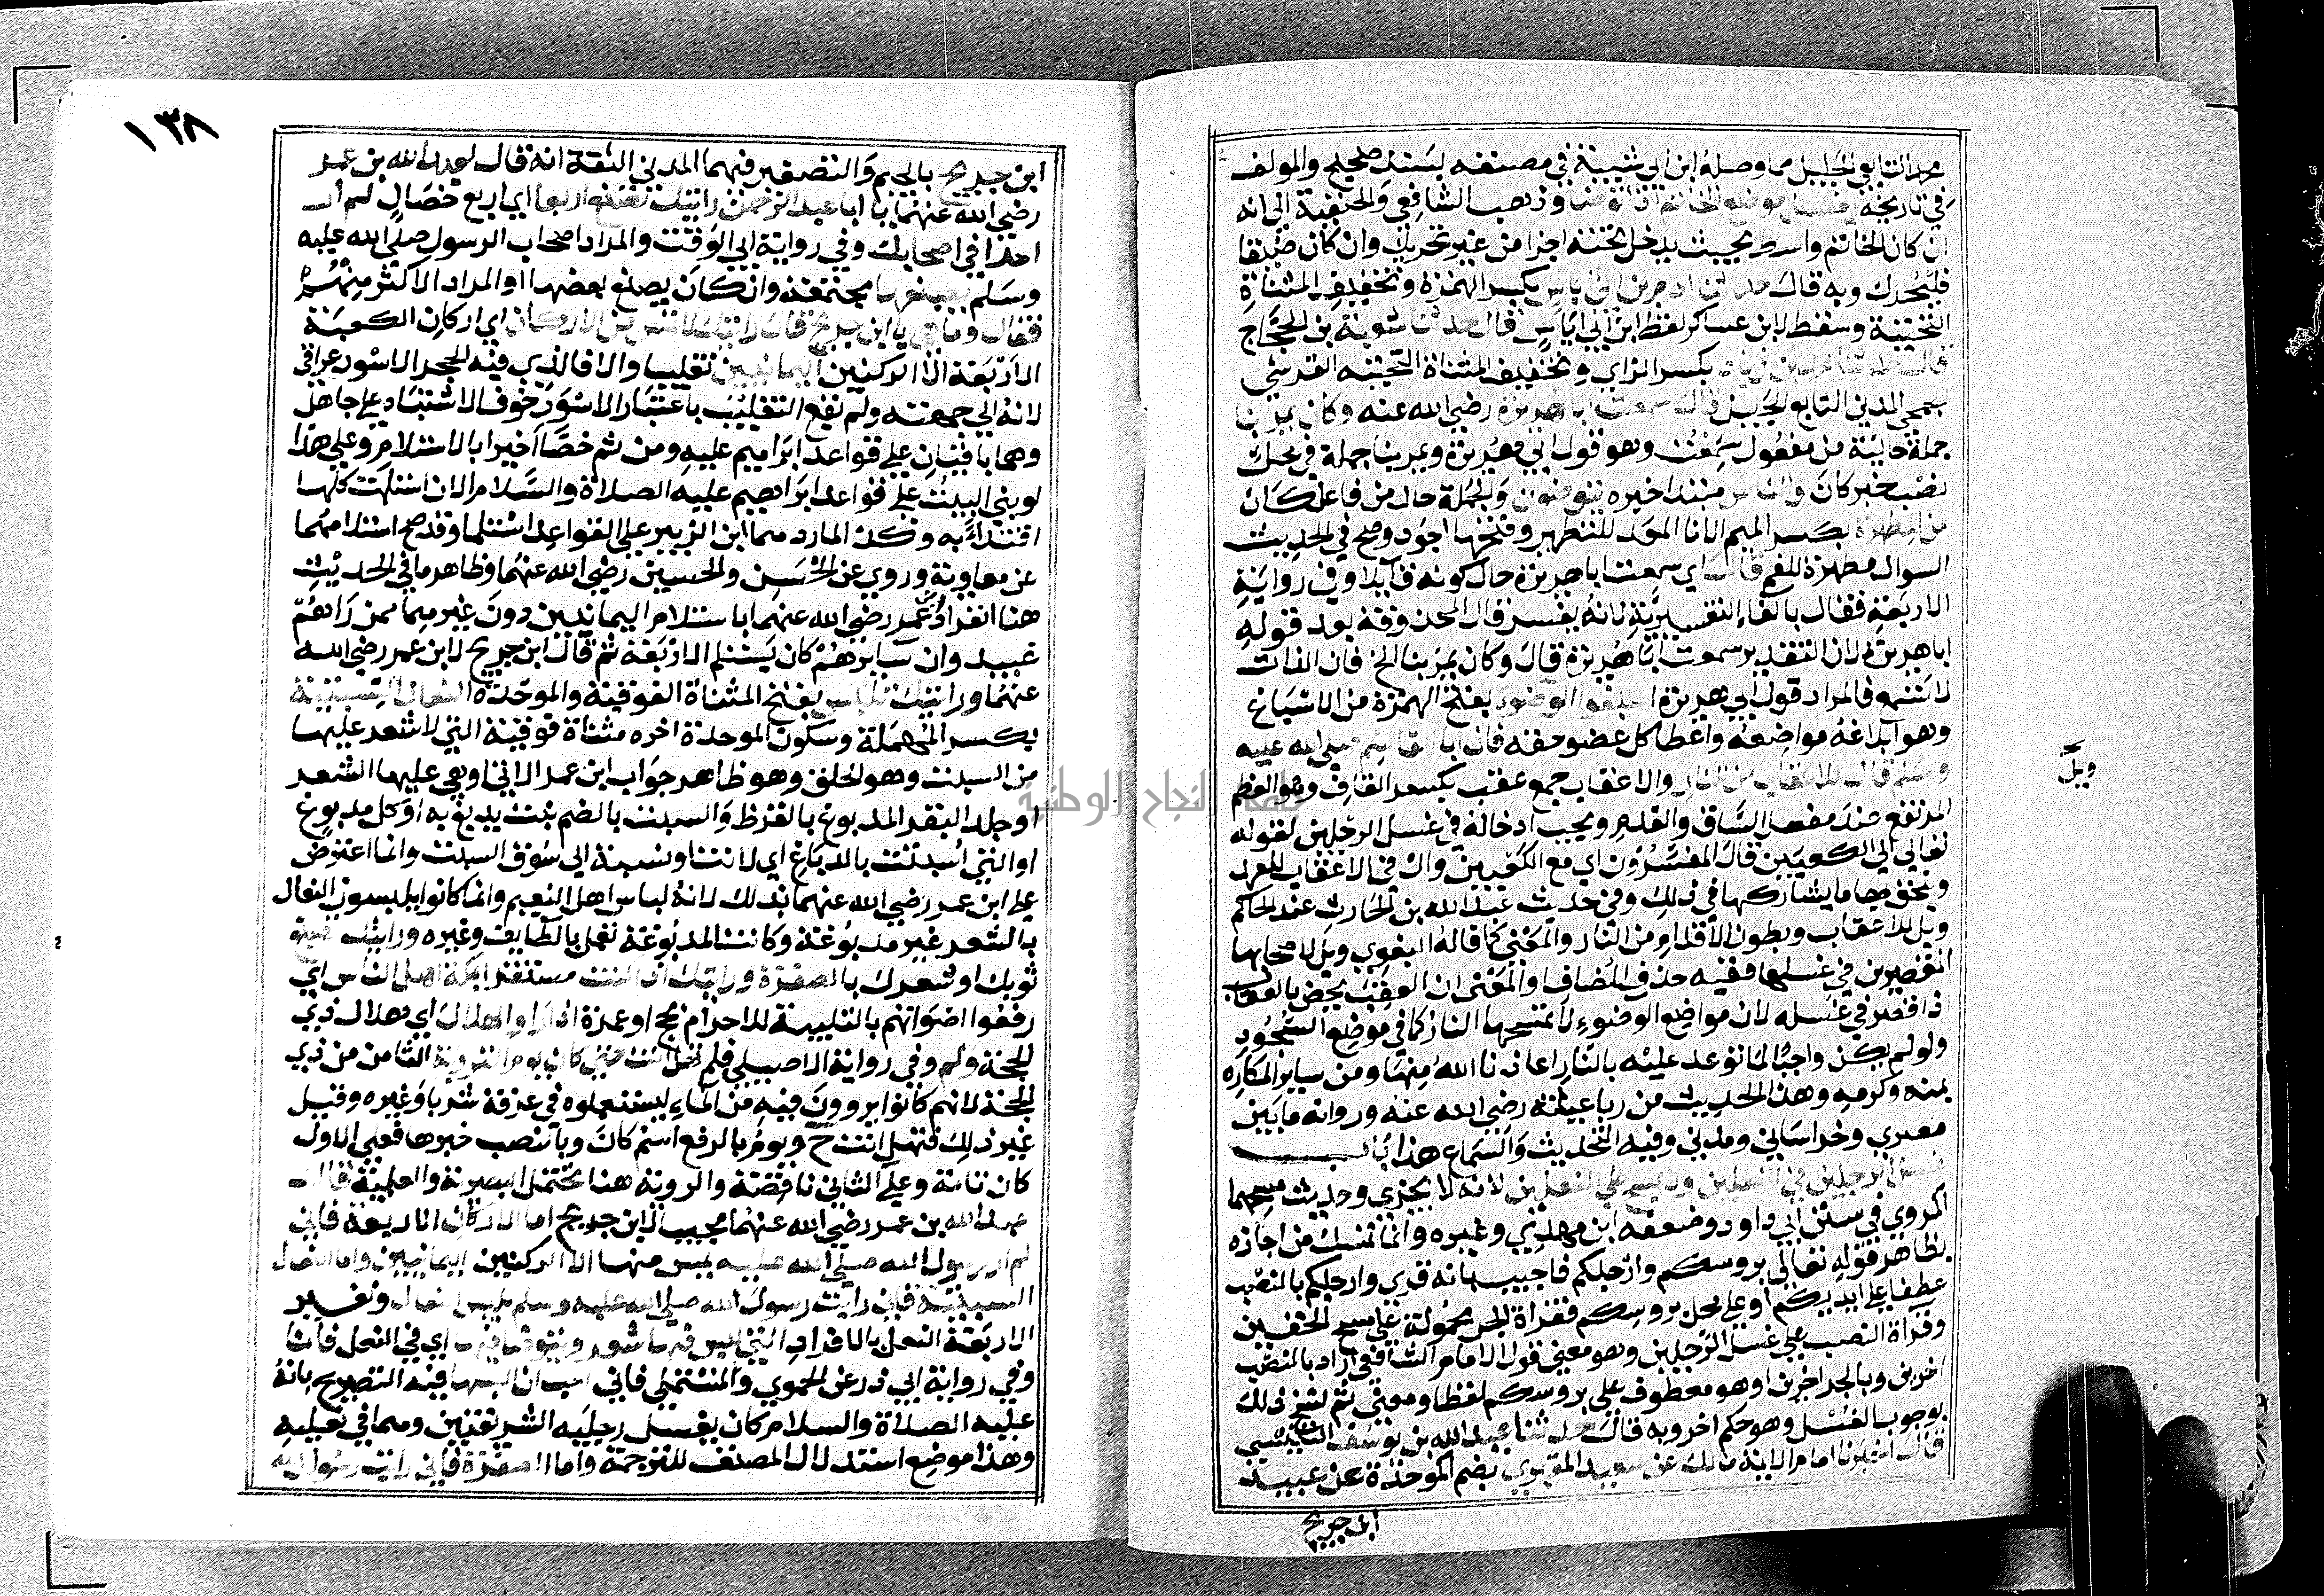 مما وصله ابن ابي شيبة في مصنفه بسند صحيح والمولف
في تاريخه يغسل موضع الخاتم اذا توضا وذهب الشافعي والحنفية الي انه
ان كان الخاتم واسعا بحيث يدخل تحته اجزا من غير تحريك وان كان ضيقا
فليحرك وبه قال حدثنا ادم بن ابي اياس بكسر الهمزة وتخفيف المثناة
التحتية وسقط لابن عساكر لفظ ابن ابي اياس قال حدثنا شعبة بن الحجاج
قال حدثنا محمد بن زياد بكسر الزاي وتخفيف المثناة التحتيه القرشي
الجمحي المدني التابع الجليل قال سمعت ابا هريرة رضي الله عنه وكان يمر بنا
جملة حالية من مفعول سمعت وهو قول ابي هريرة ويمر بنا جملة في محل
نصب خبر كان والناس مبتدا خبره يتوضون والجملة حال من فاعل كان
من المطهرة بكسر الميم الانا المعد للتطهير وفتحها اجود وصح في الحديث
السواك مطهرة للفم قال اي سمعت ابا هريرة حال كونه قايلا وفي رواية
الاربعة فقال بالفاء التفسيرية لانه يفسر قال المحذوفة بعد قوله
ابا هريرة لان التقدير سمعت ابا هريرة قال وكان يمر بنا الخ فان الذات
لا تسمع فالمراد قول ابي هريرة اسبغوا الوضوء بفتح الهمزة من الاسباغ
وهو ابلاغه مواضعه واعطا كل عضو حقه فان ابا القاسم صلي الله عليه
وسلم قال للاعقاب من النار والاعقاب جمع عقب بكسر القاف وهو العظم
المرتفع عند مفصل الساق والقدم ويجب ادخاله في غسل الرجلين لقوله
تعالي الي الكعبين قال المفسرون اي مع الكعبين وال في الاعقاب للعهد
ويلحق بها ما يشاركها في ذلك وفي حديث عبد الله بن الحارث عند الحاكم
ويل للاعقاب وبطون الاقدام من النار والمعني كما قاله البغوي ويل لاصحابها
المقصرين في غسلها ففيه حذف المضاف والمعني ان العقب يخص بالعقاب
اذا قصر في غسله لان مواضع الوضوء لا تمسها النار كما في موضع السجود
ولو لم يكن واجبا لما توعد عليه بالنار اعاذنا الله منها ومن ساير المكاره
بمنه وكرمه وهذا الحديث من رباعياته رضي الله عنه ورواته ما بين
مصري وخراساني ومدني وفيه التحديث والسماع هذا باب
غسل الرجلين في النعلين ولا يمسح علي النعلين لانه لا يجزي وحديث مسحهما
المروي في سنن ابي داود وضعفه ابن مهدي وغيره وانما تمسك من اجازه
بظاهر قوله تعالي بروسكم وارجلكم فاجيب بانه قري وارجلكم بالنصب
عطفا علي ايديكم او علي محل بروسكم فقراة الجر محمولة علي مسح الخفين
وقراة النصب علي غسل الرجلين وهو معني قول الامام الشافعي اراد بالنصب
اخرين وبالجر اخرين او هو معطوف علي بروسكم لفظا ومعني ثم نسخ ذلك
بوجوب الغسل وهو حكم اخر وبه قال حدثنا عبد الله بن يوسف التنيسي
قال اخبرنا امام الايمة مالك عن سعيد المقبري بضم الموحدة عن عبيد
ابن جريج
ويل
١٣٨
ابن جريج بالجيم والتصغير فيهما المدني الثقة انه قال لعبد الله بن عمر
رضي الله عنهما يا ابا عبد الرحمن رايتك تصنع اربعا اي اربع خصال لم ار
احدا في اصحابك وفي رواية ابي الوقت والمراد اصحاب الرسول صلي الله عليه
وسلم يصنعها مجتمعة وان كان يصنع بعضها او المراد الاكثر منهم
فقال وما هي يا ابن جريج قال رايتك لا تمس من الاركان اي اركان الكعبة
الاربعة الا الركنين اليمانيين تغليبا والا فالذي فيه الحجر الاسود عراقي
لانه الي جهته ولم يقع التغليب باعتبار الاسود خوف الاشتباه علي جاهل
وهما باقيان علي قواعد ابراهيم عليه ومن ثم خصا اخيرا بالاستلام وعلي هذا
لو بني البيت علي قواعد ابراهيم عليه الصلاة والسلام الان استلمت كلها
اقتداء به وكذا لما رد هما ابن الزبير علي القواعد استلما وقد صح استلامهما
عن معاوية وروي عن الحسن والحسين رضي الله عنهما وظاهر ما في الحديث
هنا انفراد ابن عمر رضي الله عنهما باستلام اليمانيين دون غيرهما ممن راهم
عبيد وان سايرهم كان يستلم الاربعة ثم قال ابن جريج لابن عمر رضي الله
عنهما ورايتك تلبس بفتح المثناة الفوقية والموحدة النعال السبتية
بكسر المهملة وسكون الموحدة اخره مثناة فوقية التي لا شعر عليها
من السبت وهو الحلق وهو ظاهر جواب ابن عمر الاتي او هي عليها الشعر
او جلد البقر المدبوغ بالقرظ والسبت بالضم نبت يدبغ به او كل مدبوغ
او التي اسبتت بالدباغ اي لانت او نسبة الي سوق السبت وانما اعترض
علي ابن عمر رضي الله عنهما بذلك لانه لباس اهل النعيم وانما كانوا يلبسون النعال
بالشعر غير مدبوغة وكانت المدبوغة تعمل بالطايف وغيره ورايتك تصبغ
ثوبك او شعرك بالصفرة ورايتك اذا كنت مستقرا بمكة اهل الناس اي
رفعوا اصواتهم بالتلبية للاحرام بحج او عمرة اذا راوا الهلال اي هلال ذي
الحجة ولم وفي رواية الاصيلي فلم تهل انت حتي كان يوم التروية الثامن من ذي
الحجة لانهم كانوا يروون فيه من الماء ليستعملوه في عرفة شربا وغيره وقيل
غير ذلك فتهل انت ح ويوم بالرفع اسم كان وبالنصب خبرها فعلي الاول
كان تامة وعلي الثاني ناقصة والروية هنا تحتمل البصرية والعلمية فقال
عبد الله بن عمر رضي الله عنهما مجيبا لابن جريج اما الاركان الاربعة فاني
لم ار رسول الله صلي الله عليه يمس منها الا الركنين اليمانيين واما النعال
السبتية فاني رايت رسول الله صلي الله عليه وسلم يلبس النعال ولغير
الاربعة النعل بالافراد التي ليس فيها شعر ويتوضا فيها اي في النعل فانا
وفي رواية ابي ذر عن الحموي والمستملي فاني احب ان البسها فيه التصريح بانه
عليه الصلاة والسلام كان يغسل رجليه الشريفتين وهما في نعليه
وهذا موضع استدلال المصنف للترجمة واما الصفرة فاني رايت رسول الله